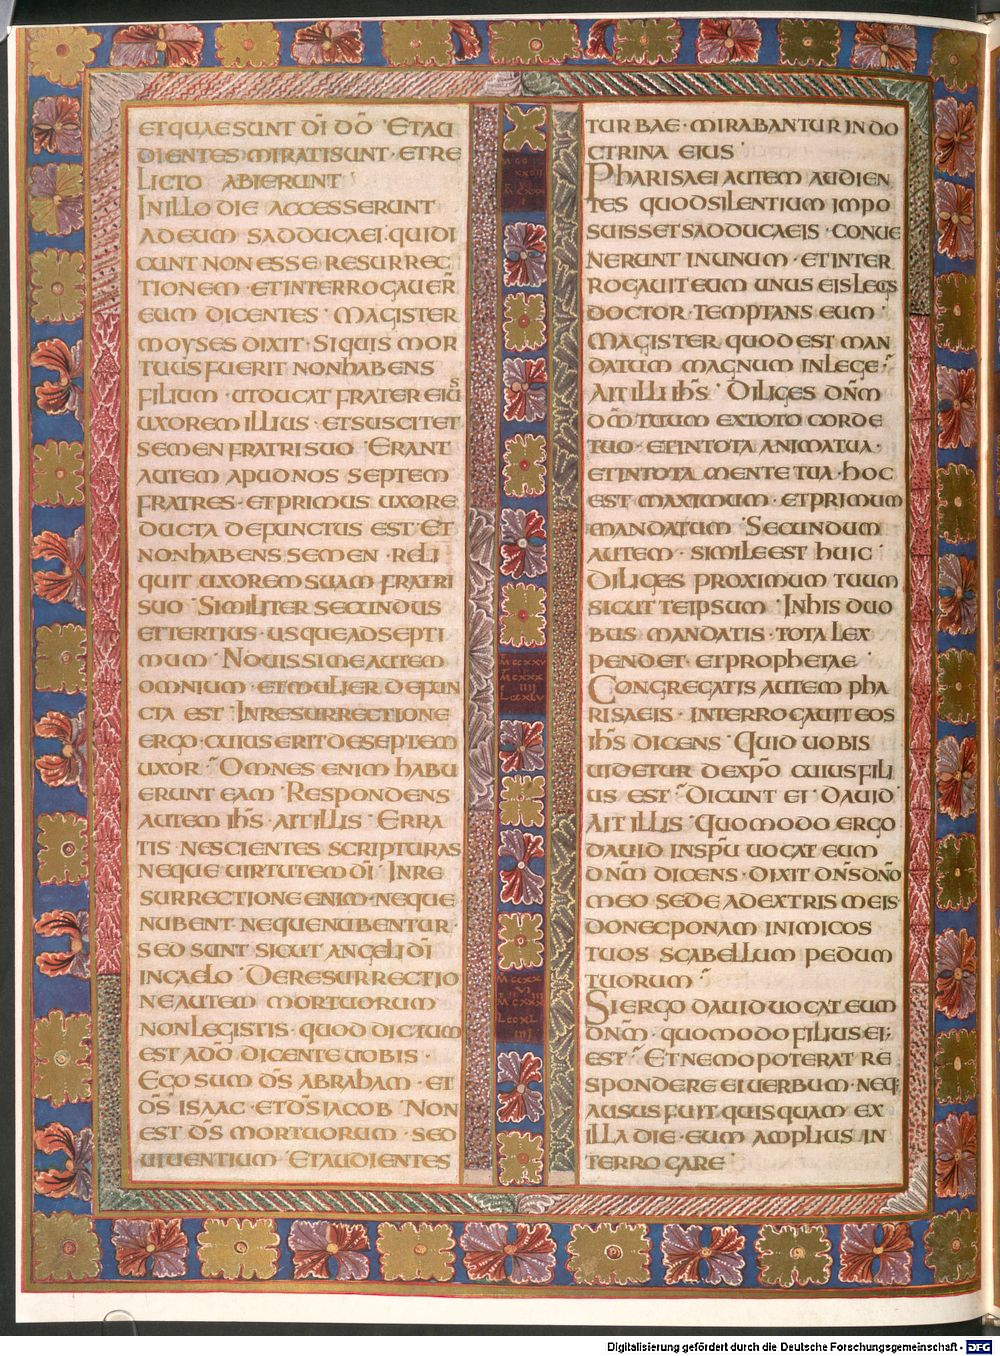 ETQUAESUNT DĪ DŌ · ETAU
DIENTES MIRATISUNT · ETRE
LICTO ABIERUNT ·
INILLO DIE ACCESSERUNT
ADEUM SADDUCAEI · QUIDI
CUNT NON ESSE RESURREC
TIONEM · ETINTERROGAUER̄
EUM DICENTES · MAGISTER
MOYSES DIXIT · SIQUIS MOR
TUUS FUERIT NONHABENS
FILIUM · UTDUCAT FRATER EIUS
UXOREM ILLIUS · ETSUSCITET
SEMEN FRATRI SUO · ERANT
AUTEM APUD NOS SEPTEM
FRATRES · ETPRIMUS UXORE
DUCTA DEFUNCTUS EST · ET
NONHABENS SEMEN · RELI
QUIT UXOREM SUAM FRATRI
SUO · SIMILITER SECUNDUS
ETTERTIUS · USQUEADSEPTI
MUM · NOUISSIME AUTEM
OMNIUM · ETMULIER DEFUN
CTA EST · INRESURRECTIONE
ERGO · CUIUS ERIT DESEPTEM
UXOR · OMNES ENIM HABU
ERUNT EAM · RESPONDENS
AUTEM IH̄S · AIT ILLIS · ERRA
TIS · NESCIENTES SCRIPTURAS
NEQUE UIRTUTEM DĪ · INRE
SURRECTIONE ENIM · NEQUE
NUBENT · NEQUENUBENTUR ·
SED SUNT SICUT ANGELI DĪ
INCAELO · DERESURRECTIO
NEAUTEM MORTUORUM
NON LEGISTIS · QUOD DICTUM
EST ADŌ DICENTE UOBIS ·
EGO SUM D̄S ABRAHAM · ET
D̄S ISAAC · ETD̄S IACOB · NON
EST D̄S MORTUORUM · SED
UIUENTIUM · ETAUDIENTES
TURBAE · MIRABANTUR INDO
CTRINA EIUS ·
PHARISAEI AUTEM AUDIEN
TES QUODSILENTIUM IMPO
SUISSET SADDUCAEIS · CONUE
NERUNT INUNUM · ETINTER
ROGAUIT EUM UNUS EIS LEGIS
DOCTOR · TEMPTANS EUM ·
MAGISTER QUOD EST MAN
DATUM MAGNUM INLEGE ·
AIT ILLI IH̄S · DILIGES DN̄M
DM̄ TUUM EXTOTO CORDE
TUO · ETINTOTA ANIMATUA ·
ETINTOTA MENTE TUA · HOC
EST MAXIMUM · ETPRIMUM
MANDATUM · SECUNDUM
AUTEM · SIMILE EST HUIC ·
DILIGES PROXIMUM TUUM
SICUT TEIPSUM · INHIS DUO
BUS MANDATIS · TOTA LEX
PENDET · ETPROPHETAE ·
CONGREGATIS AUTEM PHA
RISAEIS · INTERROGAUIT EOS
IH̄S DICENS · QUID UOBIS
UIDETUR DEXP̄O CUIUS FILI
US EST · DICUNT EI · DAUID ·
AIT ILLIS · QUOMODO ERGO
DAUID INSPŪ UOCAT EUM
DN̄M DICENS · DIXIT DN̄S DN̄O
MEO SEDE ADEXTRIS MEIS
DONECPONAM INIMICOS
TUOS SCABELLUM PEDUM
TUORUM ·
SIERGO DAUID UOCAT EUM
DN̄M · QUOMODO FILIUS EI;
EST · ETNEMO POTERAT RE
SPONDERE EI UERBUM · NEQ;
AUSUS FUIT QUISQUAM EX
ILLA DIE · EUM AMPLIUS IN
TERROGARE ·
Digitalisierung gefördert durch die Deutsche Forschungsgemeinschaft - DFG